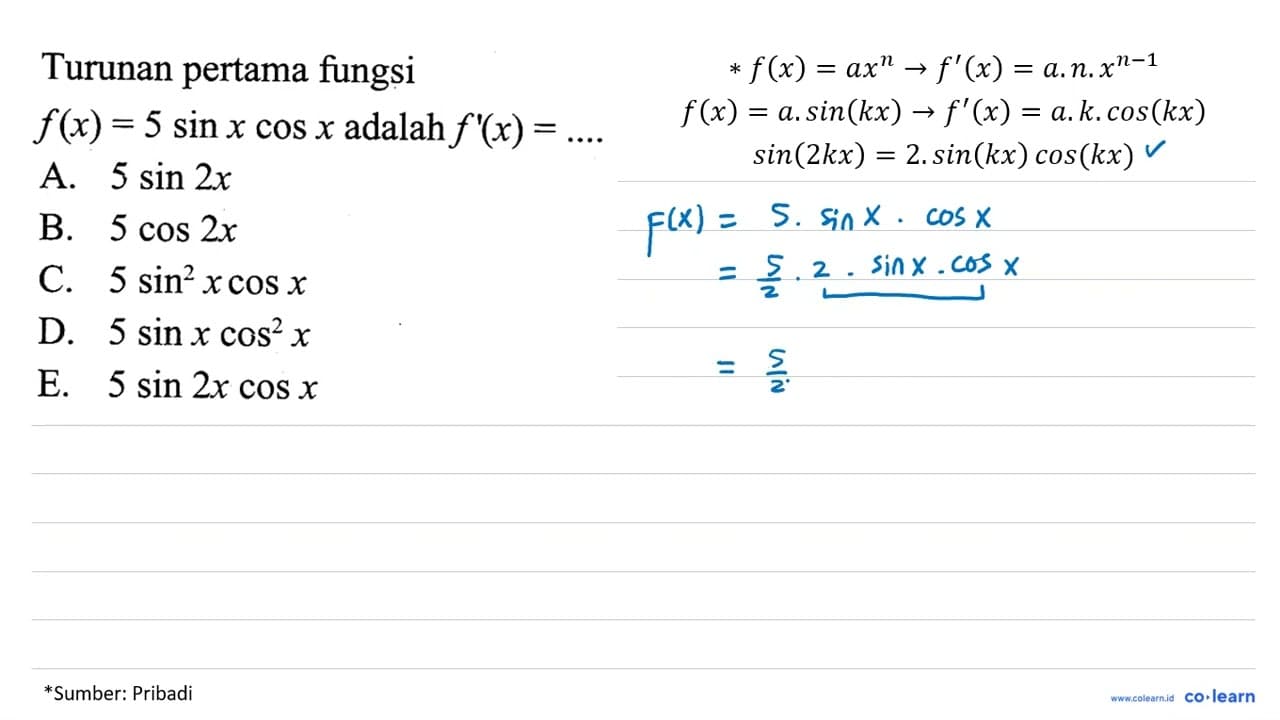 Turunan pertama fungsi
f(x) = 5 sin x cos x adalah f'(x) = ....
A. 5 sin 2x
B. 5 cos 2x
C. 5 sin² x cos x
D. 5 sin x cos² x
E. 5 sin 2x cos x
* f(x) = axⁿ → f'(x) = a.n.xⁿ⁻¹
f(x) = a.sin(kx) → f'(x) = a.k.cos(kx)
sin(2kx) = 2.sin(kx) cos(kx) ✓
F(x) = 5. sin x . cos x
= 5/2 . 2 . sin x . cos x
= 5/2.
*Sumber: Pribadi
www.colearn.id co·learn